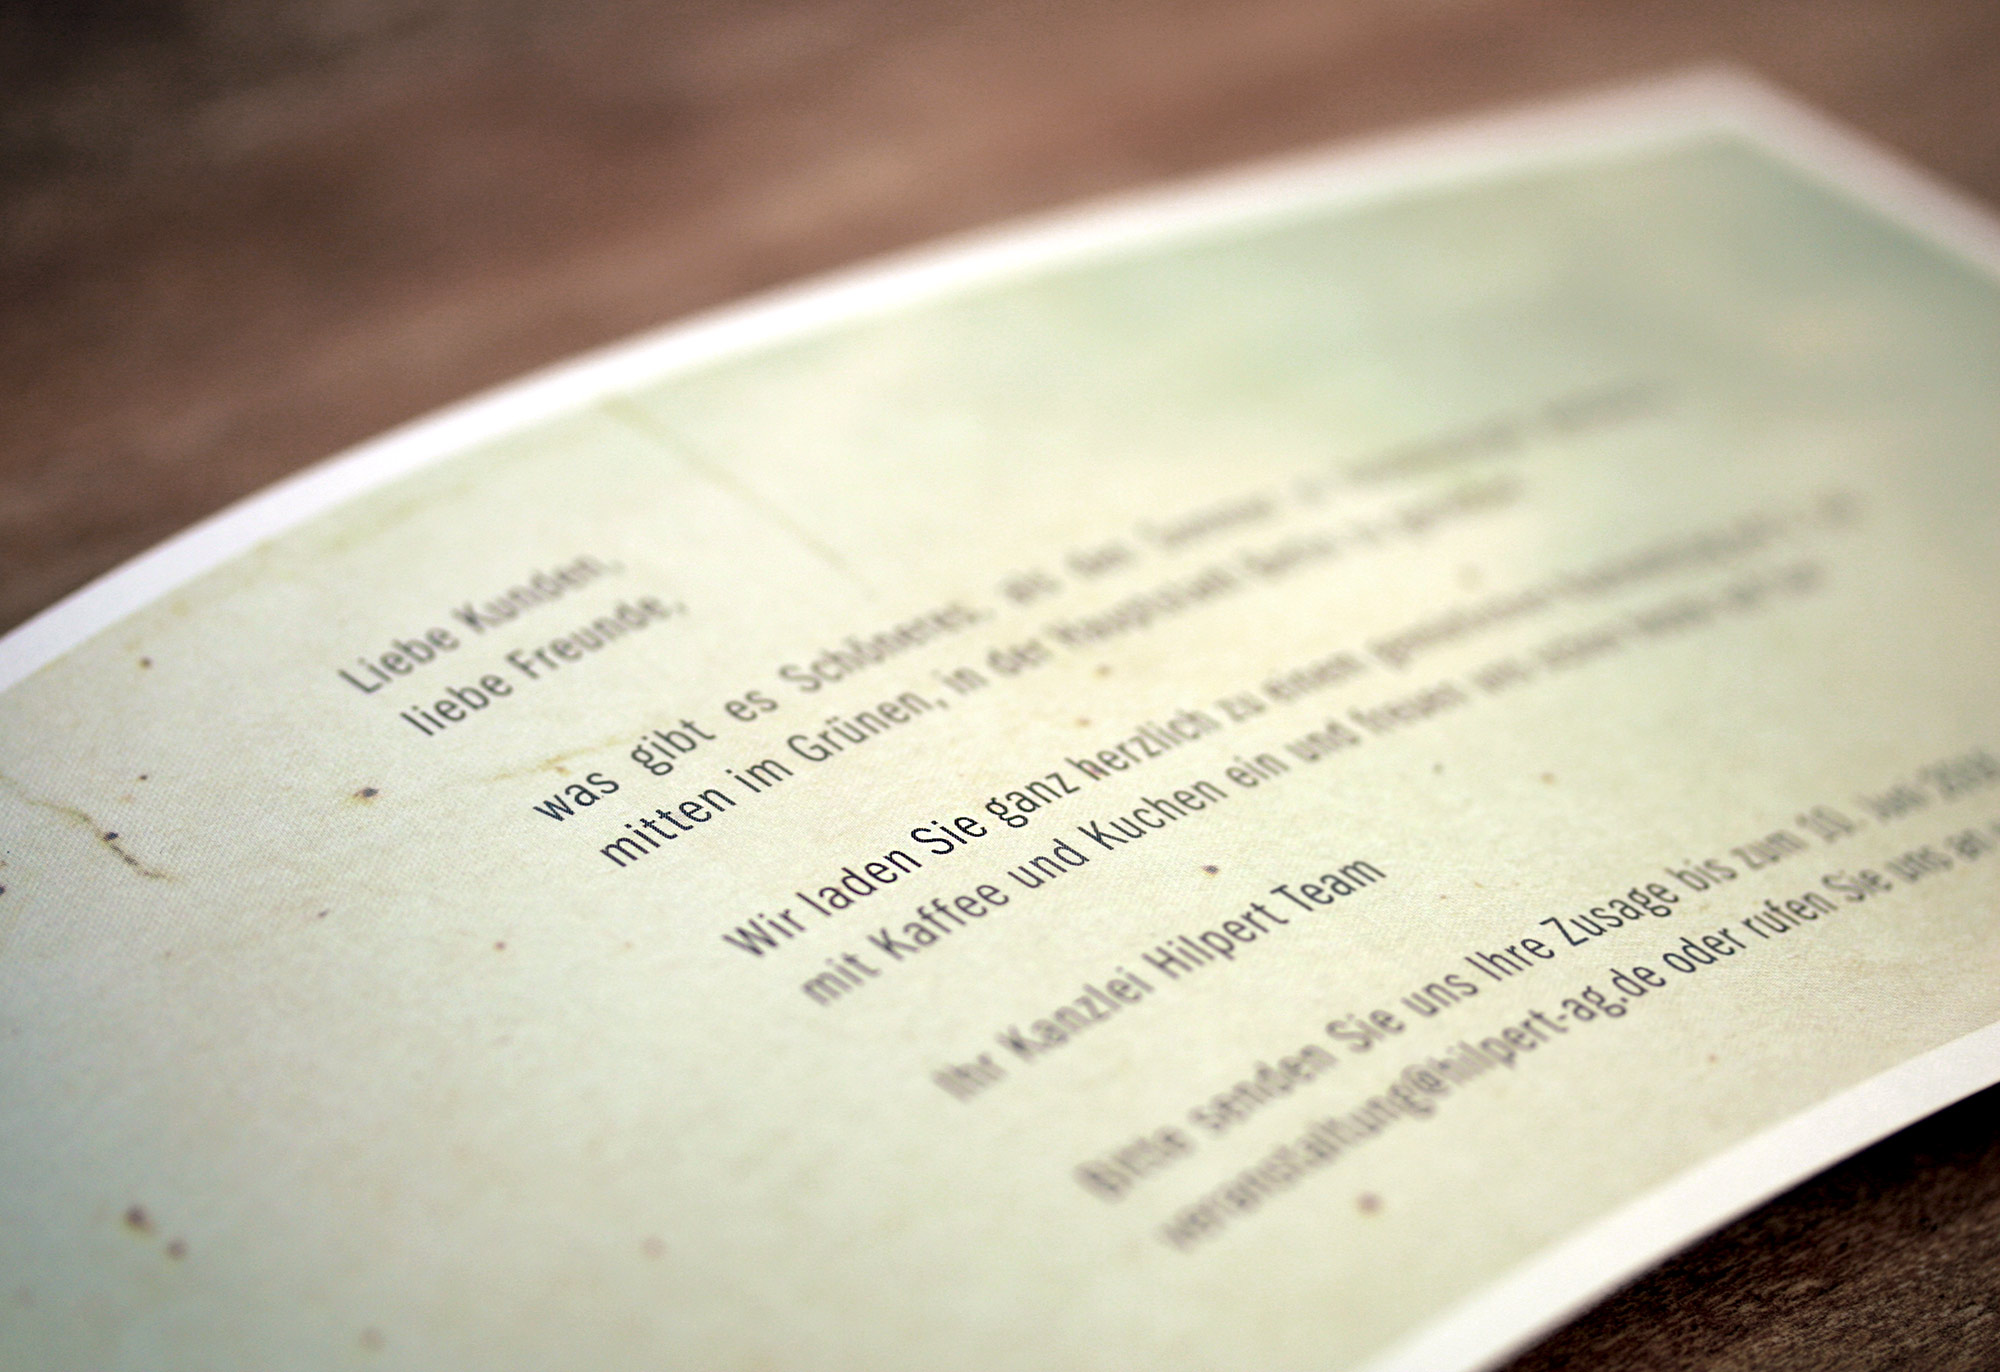 Liebe Kunden,
liebe Freunde,
was gibt es Schöneres, als den Sommer
mitten im Grünen, in der Hauptstadt Berlin zu genießen
Wir laden Sie ganz herzlich zu einem gemeinsamen
mit Kaffee und Kuchen ein und freuen uns
Ihr Kanzlei Hilpert Team
Bitte senden Sie uns Ihre Zusage bis zum 10. Juni
veranstaltung@hilpert-ag.de oder rufen Sie uns an